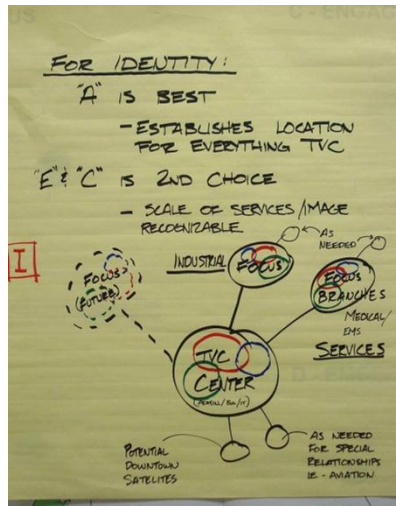 C - ENGAG
FOR IDENTITY:
"A" IS BEST
- ESTABLISHES LOCATION
FOR EVERYTHING TVC
"E" & "C" IS 2ND CHOICE
- SCALE OF SERVICES/IMAGE
RECOGNIZABLE
AS
NEEDED
I
INDUSTRIAL
FOCUS
FOCUS
(FUTURE)
FOCUS
BRANCHES
MEDICAL/
EMS
SERVICES
TVC
CENTER
POTENTIAL
DOWNTOWN
SATELITES
AS NEEDED
FOR SPECIAL
RELATIONSHIPS
IE - AVIATION